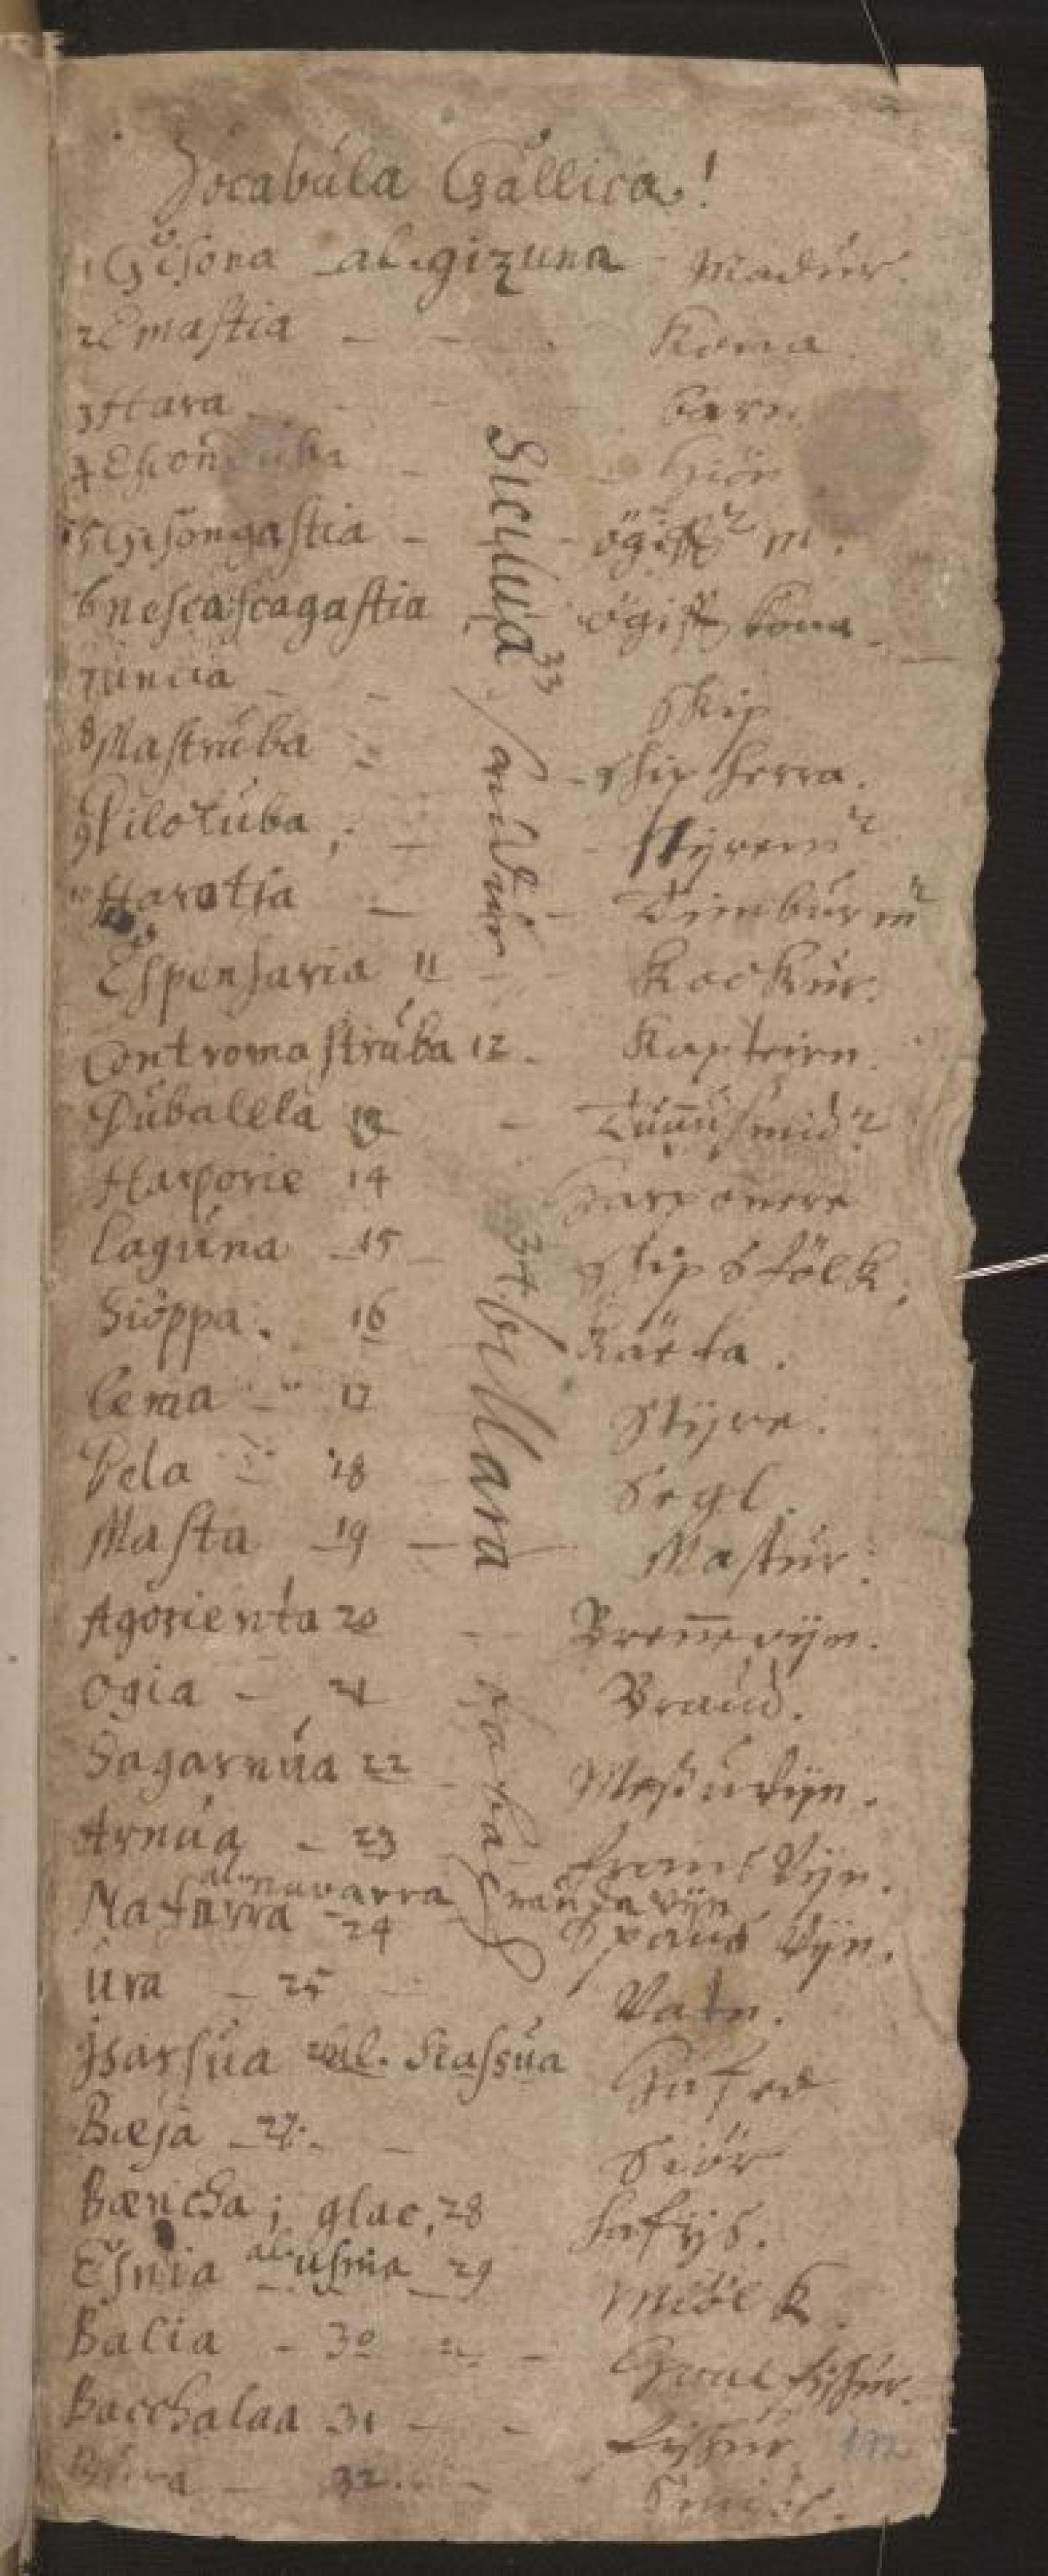 Vocabula Gallica!
1 Gisona al. gizuna - Madur.
2 Emastia - - - Kona.
3 Hara - - - barn
4 Escon
5 Gisongastia - - ögifft m.
6 nescascagastia ögifft kona
7 Uncia - - Skip
8 Mastruba - - skip herra.
9 Pilotuba, - - styrem
10 Harotsa - - Timburm
Espensaria 11 - - Kockur.
Contromastruba 12. Kapteirn.
Dubalela 13 - Tunnusmid
Harporie 14 harponere
Laguna - 15 - skips fólk.
Sióppa. 16 Kaeta.
Lema - 17 Styre.
Bela 18 Segl.
Masta - 19 - Mastur.
Agorienta 20 - - Brennevijn.
Ogia - 21 Braud.
Sagarnua 22 - Messuvijn.
Arnua - 23 frans Vijn.
al. navarra
Nafarra - 24 Spans Vijn.
Ura - 25 - Vatn.
Jsarsua 26 al. Siassua
Bæja - 27. - Siör
Bæricha; glac, 28 hafijs.
Esnia al. usnia 29 miólk.
Balia - 30 - Hvalfiskur.
Bacchalaa 31 - - fiskur
32. - Smiör.
Sicylua 33 / andur
34 byllara